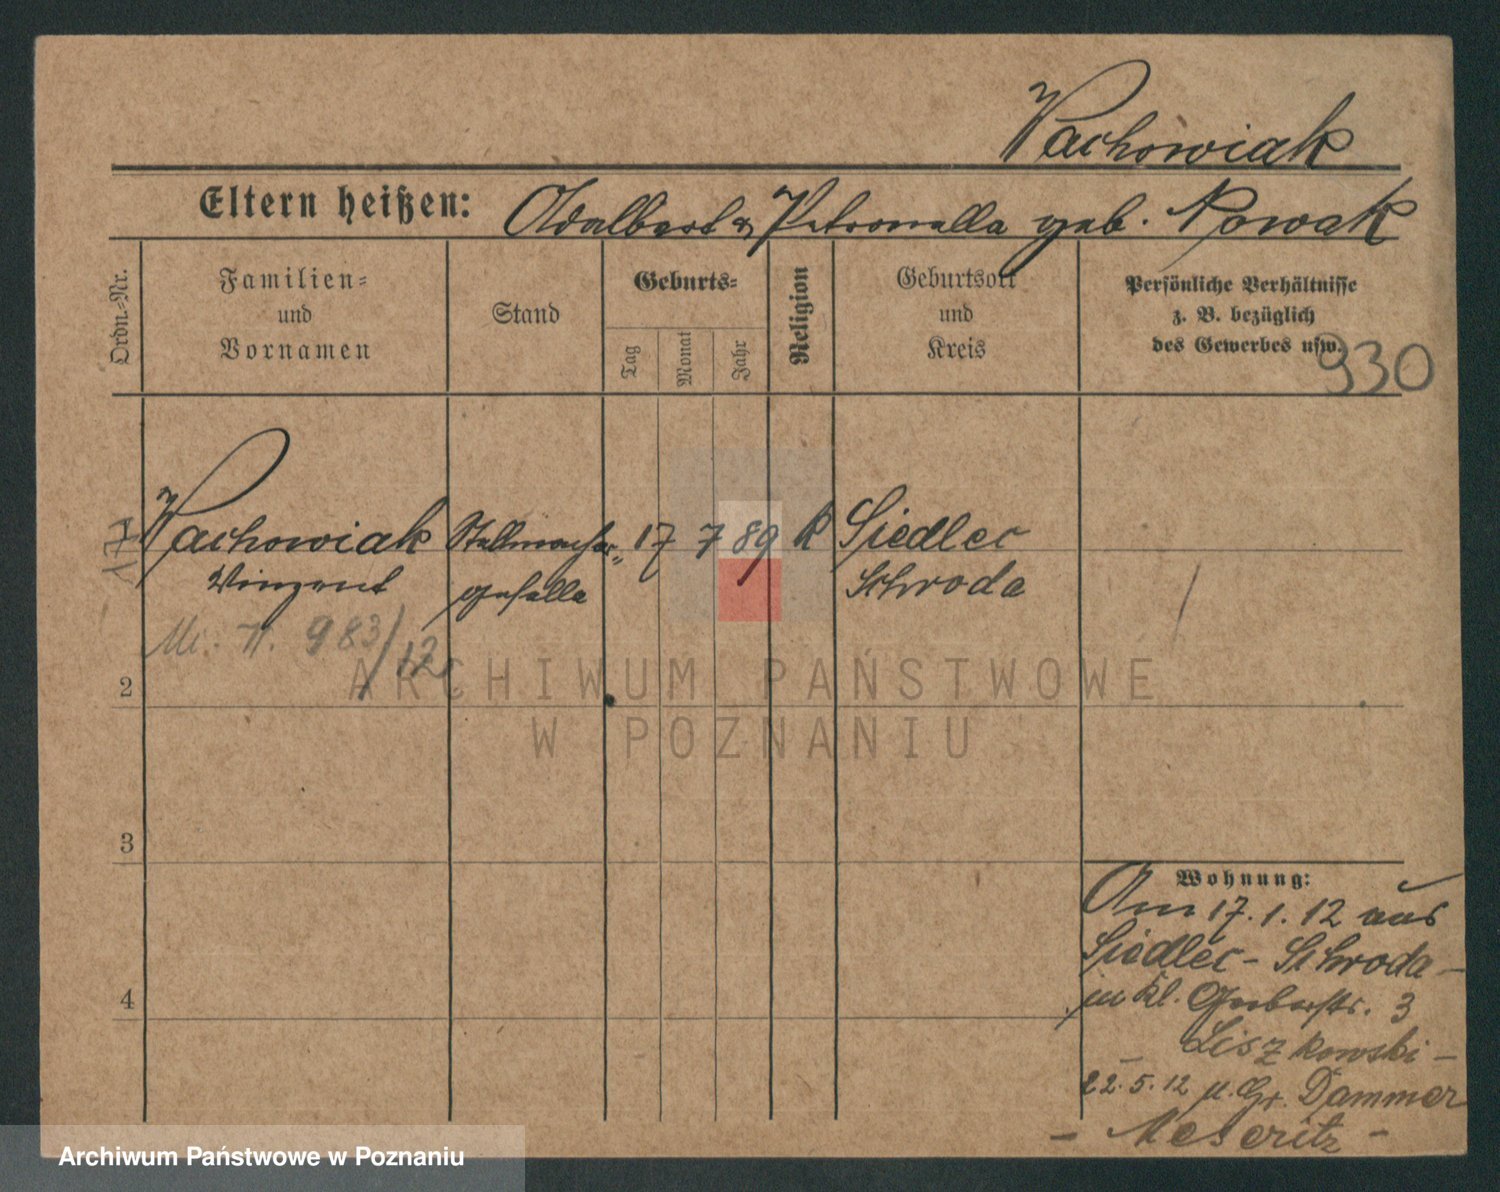 Wachowiak
Eltern heißen: Adalbert & Petronella geb. Nowak
Ordn.-Nr.
Familien-
und
Vornamen
Stand
Geburts-
Tag
Monat
Jahr
Religion
Geburtsort
und
Kreis
Persönliche Verhältnisse
z. B. bezüglich
des Gewerbes usw.
930
Wachowiak Stellmacher- 17 7 89 k Siedlec
Vinzent geselle Schroda
983/12
2
3
4
Wohnung:
Am 17.1.12 aus
Siedlec - Schroda -
in Kl. Gerberstr. 3
Liszkowski -
22.5.12 n. Gr. Dammer
- Meseritz -
ARCHIWUM PAŃSTWOWE
W POZNANIU
Archiwum Państwowe w Poznaniu